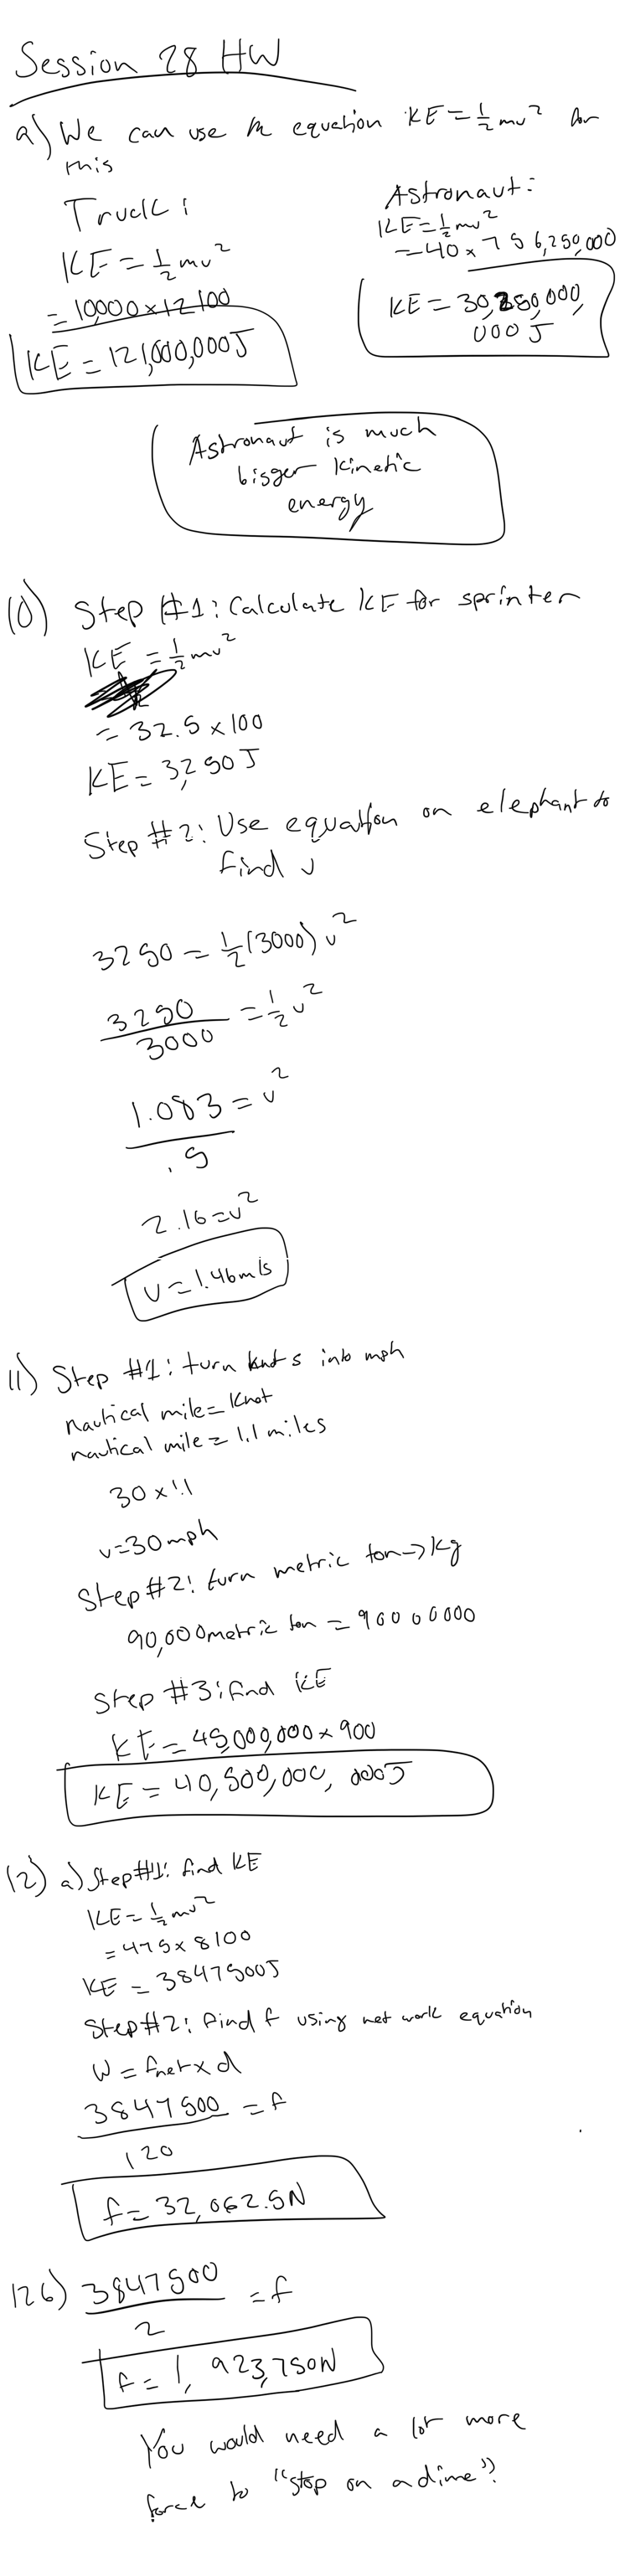 Session 28 HW
9) We can use the equation KE = ½mv² for
this
Truck:
KE = ½mv²
= 10,000 x 12100
KE = 121,000,000J
Astronaut:
KE = ½mv²
= 40 x 756,250,000
KE = 30,250,000,
000 J
Astronaut is much
bigger kinetic
energy
10) Step #1: Calculate KE for sprinter
KE = ½mv²
= 32.5 x 100
KE = 3,250J
Step #2: Use equation on elephant to
find v
3250 = ½(3000)v²
3250/3000 = ½v²
1.083/.5 = v²
2.16 = v²
v = 1.46m/s
11) Step #1: turn knots into mph
nautical mile = knot
nautical mile = 1.1 miles
30 x 1.1
v = 30mph
Step #2: turn metric ton → kg
90,000 metric ton = 90000000
Step #3: find KE
KE = 45,000,000 x 900
KE = 40,500,000,000J
12) a) Step #1: find KE
KE = ½mv²
= 475 x 8100
KE = 3847500J
Step #2: find f using net work equation
W = fnet x d
3847500/120 = f
f = 32,062.5N
12b) 3847500/2 = f
f = 1,923,750N
You would need a lot more
force to "stop on a dime".